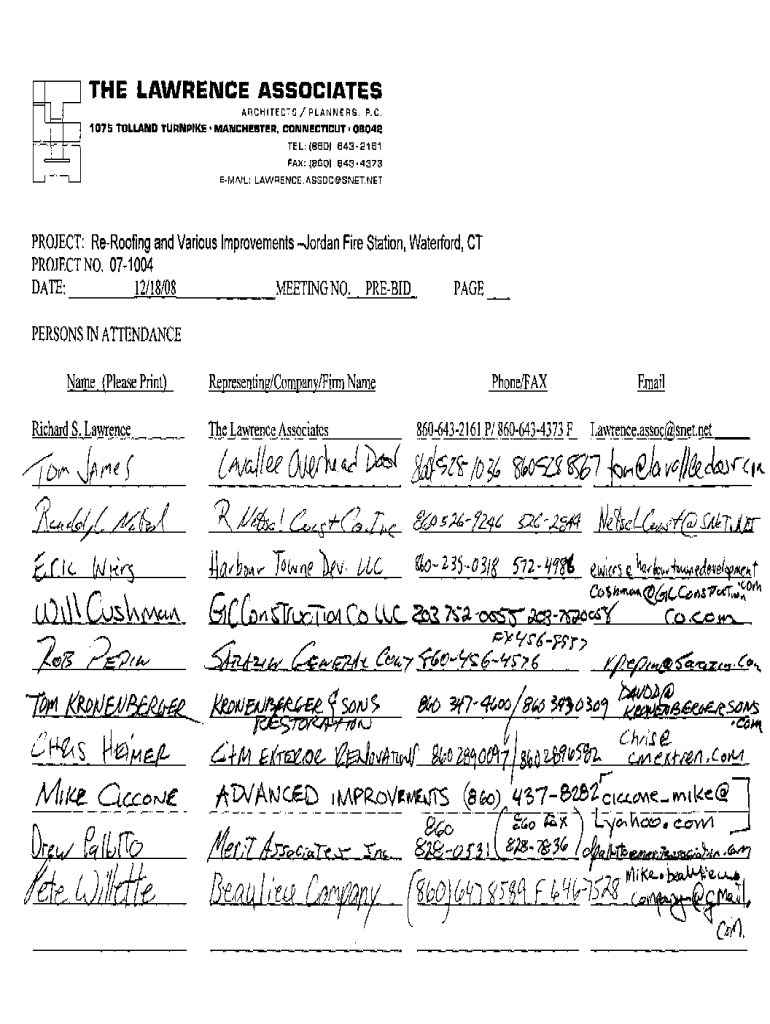 THE LAWRENCE ASSOCIATES
ARCHITECTS / PLANNERS, P.C.
1075 TOLLAND TURNPIKE · MANCHESTER, CONNECTICUT · 06042
TEL: (860) 643-2161
FAX: (860) 643-4373
E-MAIL: LAWRENCE.ASSOC@SNET.NET
PROJECT: Re-Roofing and Various Improvements –Jordan Fire Station, Waterford, CT
PROJECT NO. 07-1004
DATE: 12/18/08 MEETING NO. PRE-BID PAGE
PERSONS IN ATTENDANCE
Name (Please Print) Representing/Company/Firm Name Phone/FAX Email
Richard S. Lawrence The Lawrence Associates 860-643-2161 P/ 860-643-4373 F Lawrence.assoc@snet.net
Tom James Lavallee Overhead Door 860 528 1036 860 528 8567
R Netsel Const Co. Inc 860 526-9246 526-2944
Eric Wiers Harbour Towne Dev. LLC 860-235-0318 572-4986
Will Cushman GC Construction Co LLC 203 752-0055 203-7520058 Co.com
FX 456-8557
Rob Pepin Sarazin General Cont 860-456-4576
Tom Kronenberger Kronenberger & Sons 860 347-4600/860 3430309 David@
Restoration Kronenbergersons
.com
Chris Heimer C+M Exterior Renovations 860 2890097/860 2896582 Chris@
cmextren.com
Mike Ciccone Advanced Improvements (860) 437-8282 ciccone_mike@
yahoo.com
Drew Merit Associates Inc. 860 828-0531 (860 Fax 828-7836)
Pete Willette Beaulieu Company (860) 647 8589 F 646-7528 Mike.beaulieu
company@gmail.
com.